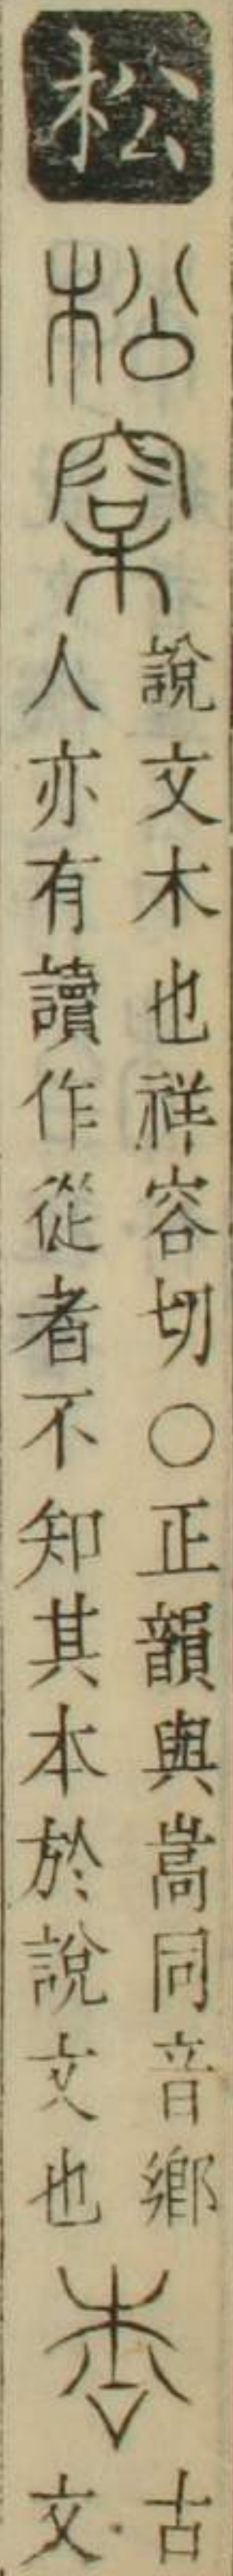 松
松
㮤
說文木也祥容切○正韻與嵩同音鄉
人亦有讀作從者不知其本於說文也
古
文